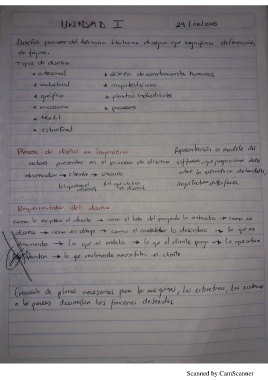 UNIDAD I
Diseño proviene del término italiano disegno que significa delineación
de figura.
Tipos de diseño
• artesanal • diseño de asentamientos humanos
• industrial • arquitectónico
• gráfico • plantas industriales
• mecánico • procesos
• textil
• estructural
Proceso de diseño en ingeniería
actores presentes en el proceso de diseño
diseñador → cliente → usuario
Representación o modelo del
software, que proporciona datos
sobre la estructura de los datos,
arquitectura, interfaces
Requerimientos del diseño
como lo explica el cliente → como el líder del proyecto lo entendió → como se
diseña → como se dibujó → como el lo describe → lo que se
→ lo que se → lo que el cliente pagó → lo que
→ lo que realmente necesitaba el cliente
Creación de planos necesarios para las máquinas, las estructuras, los sistemas
o los procesos desarrollen las funciones deseadas
Scanned by CamScanner